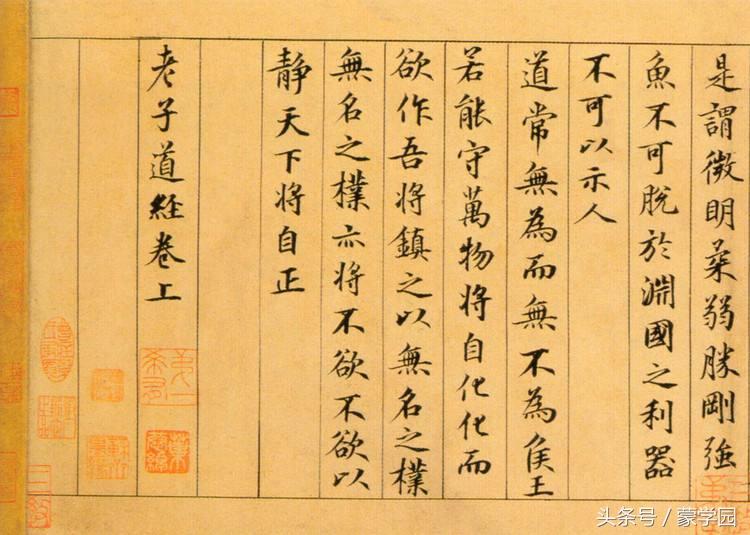 是謂微明柔弱勝剛強
魚不可脫於淵國之利器
不可以示人
道常無為而無不為侯王
若能守萬物將自化化而
欲作吾將鎮之以無名之樸
無名之樸亦將不欲不欲以
靜天下將自正
老子道經卷上
头条号 / 蒙学园